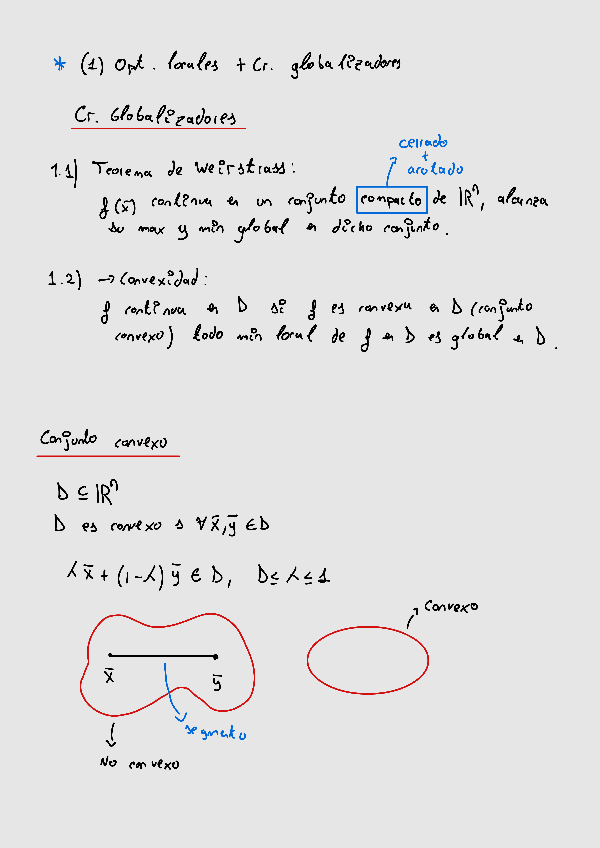 * (1) Opt. locales + Cr. globalizadores
Cr. Globalizadores
cerrado
+
acotado
1.1) Teorema de Weirstrass:
f(x̄) continua en un conjunto compacto de ℝⁿ, alcanza
su max y min global en dicho conjunto.
1.2) → Convexidad:
f continua en D si f es convexa en D (conjunto
convexo) todo min local de f en D es global en D.
Conjunto convexo
D ⊆ ℝⁿ
D es convexo s ∀ x̄, ȳ ∈ D
λ x̄ + (1-λ) ȳ ∈ D, 0 ≤ λ ≤ 1
Convexo
x̄
ȳ
segmento
No convexo